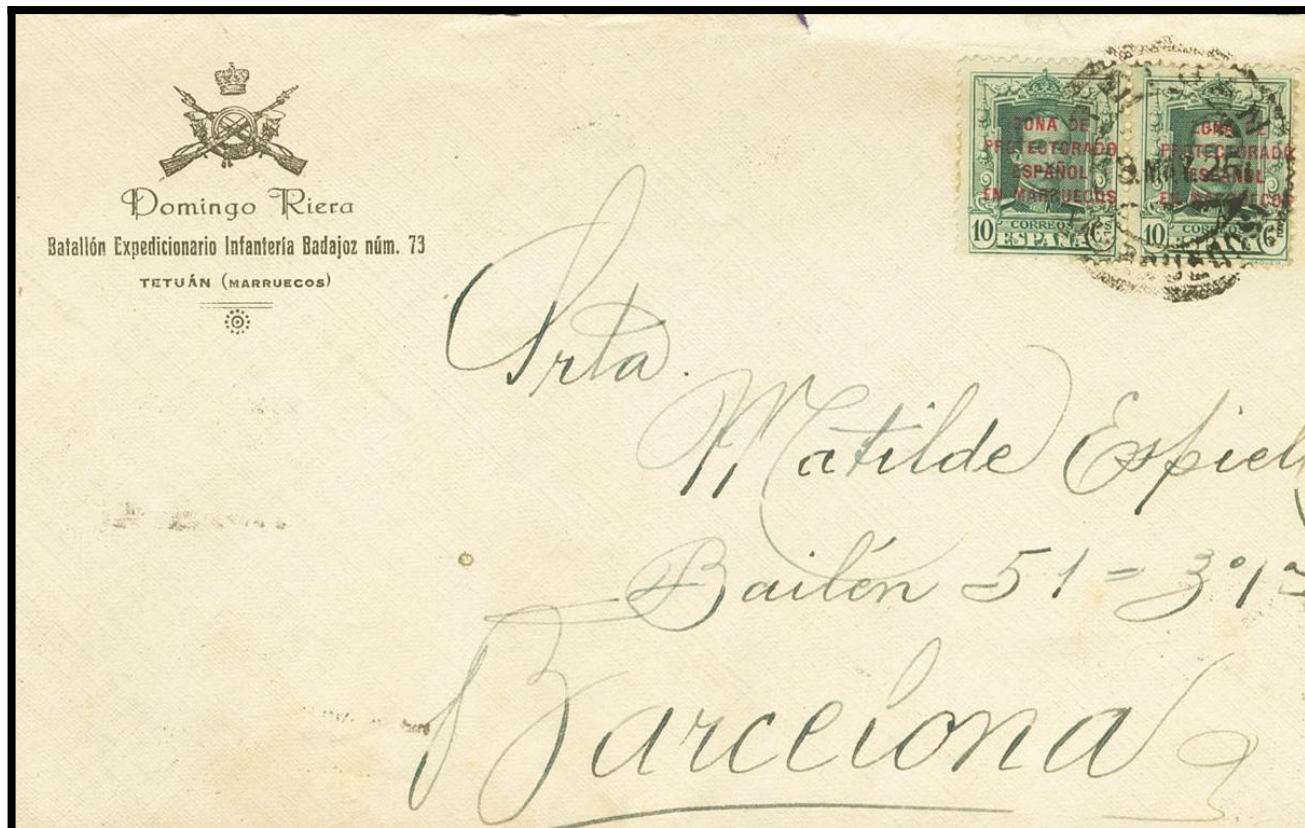 Domingo Riera
Batallón Expedicionario Infantería Badajoz núm. 73
TETUÁN (MARRUECOS)
ZONA DE
PROTECTORADO
ESPAÑOL
EN MARRUECOS
CORREOS
10 ESPAÑA
ZONA DE
PROTECTORADO
ESPAÑOL
EN MARRUECOS
CORREOS
10 ESPAÑA
Srta.
Matilde
Bailén 51 = 3º 1ª
Barcelona